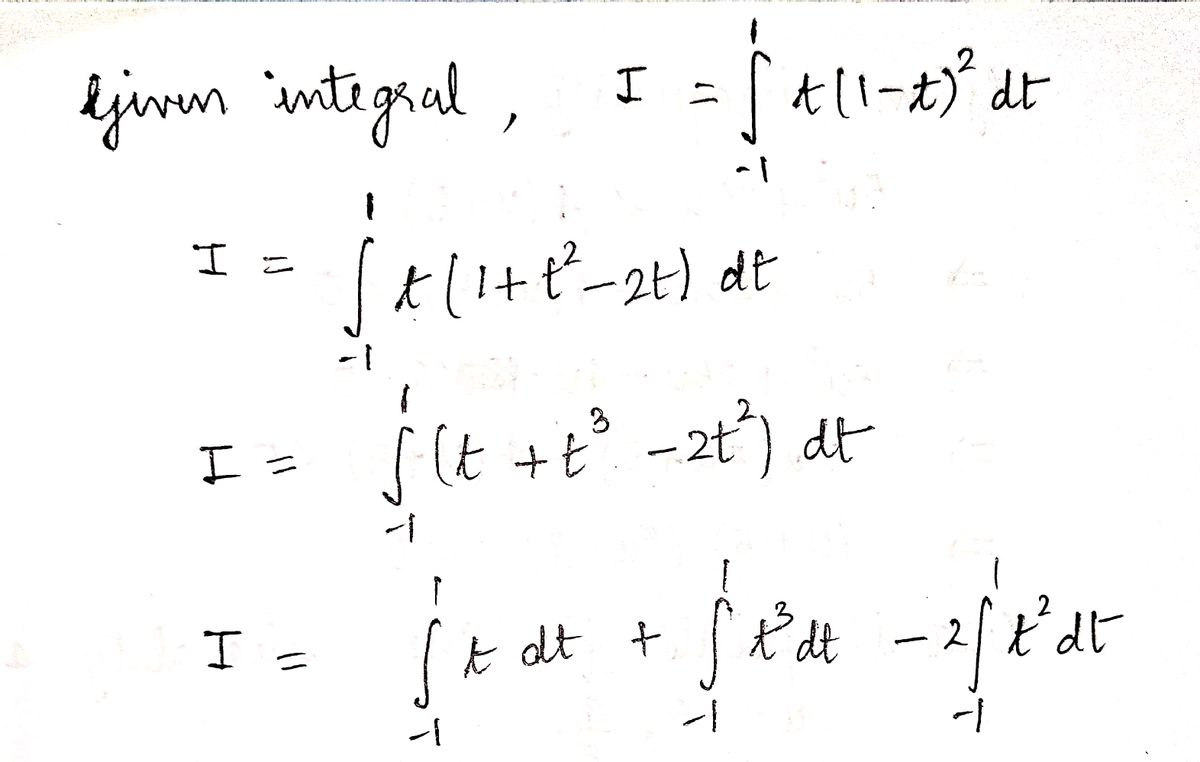 given integral, I = ∫₋₁¹ t(1-t)² dt
I = ∫₋₁¹ t(1+t²-2t) dt
I = ∫₋₁¹ (t + t³ - 2t²) dt
I = ∫₋₁¹ t dt + ∫₋₁¹ t³ dt - 2∫₋₁¹ t² dt